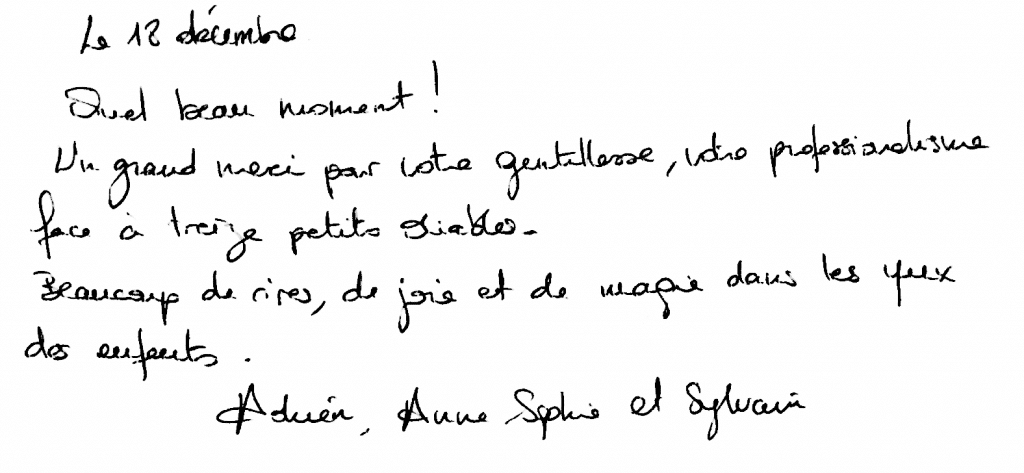 Le 12 décembre
Quel beau moment !
Un grand merci pour votre gentillesse, votre professionalisme
face à treize petits diables.
Beaucoup de rires, de joie et de magie dans les yeux
des enfants.
Adrien, Anne Sophie et Sylvain